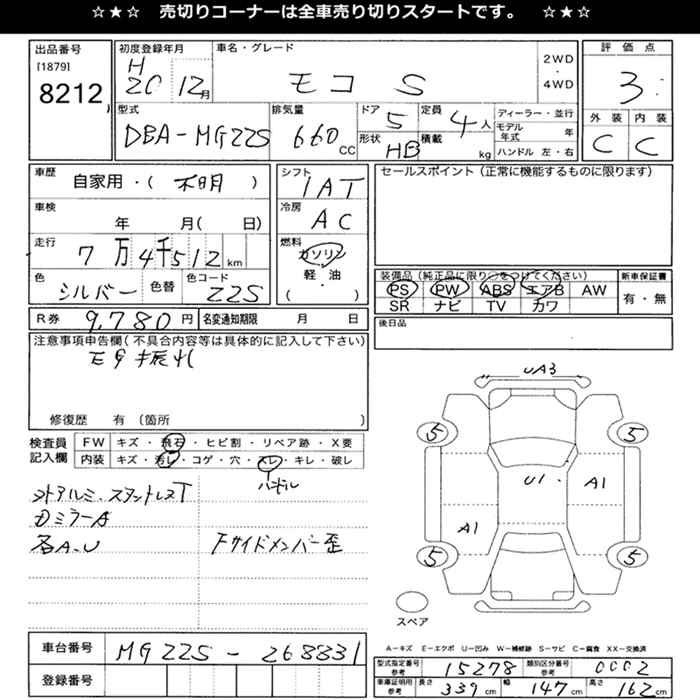 ☆★☆ 売切りコーナーは全車売り切りスタートです。 ☆★☆
出品番号 初度登録年月 車名・グレード 評価点
[1879] H 2WD
8212 20 12月 モコ S ・ 4WD 3
型式 排気量 ドア 5 定員 4人 ディーラー・並行 外装 内装
DBA-MG22S 660cc 形状 HB 積載 kg モデル年式 年 C C
ハンドル 左・右
車歴 自家用・(不明) シフト IAT セールスポイント(正常に機能するものに限ります)
車検 年 月( 日) 冷房 AC
走行 7万4千512km 燃料 ガソリン
色 シルバー 色替 色コード Z2S 軽・油 ( ・ )
装備品(純正品に限り○をつけてください) 新車保証書
PS PW ABS エアB AW 有・無
SR ナビ TV カワ
R券 9,780円 名変通知期限 月 日 後日品
注意事項申告欄(不具合内容等は具体的に記入して下さい)
Eg振れ
修復歴 有(箇所 )
検査員 FW キズ・飛石・ヒビ割・リペア跡・X要
記入欄 内装 キズ・汚レ・コゲ・穴・スレ・キレ・破レ
ハンドル
各A.U Fサイドメンバー歪
UA3
5 5
U1 A1
A1
5 5
スペア
A-キズ E-エクボ U-凹み W-補修跡 S-サビ C-腐食 XX-交換済
車台番号 MG22S-268831
型式指定番号 参考 15278 類別区分番号 参考 0002
登録番号
車庫証明用 参考 長さ 339cm 幅 147cm 高さ 162cm